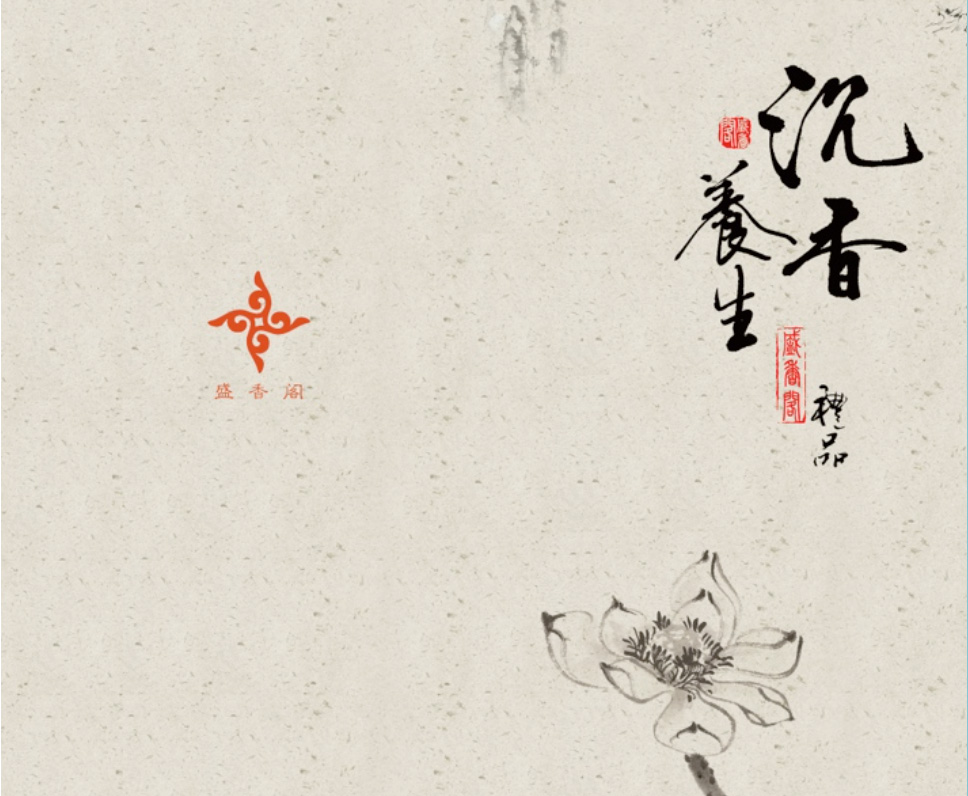 沉香
養生
盛香閣
禮品
盛香阁